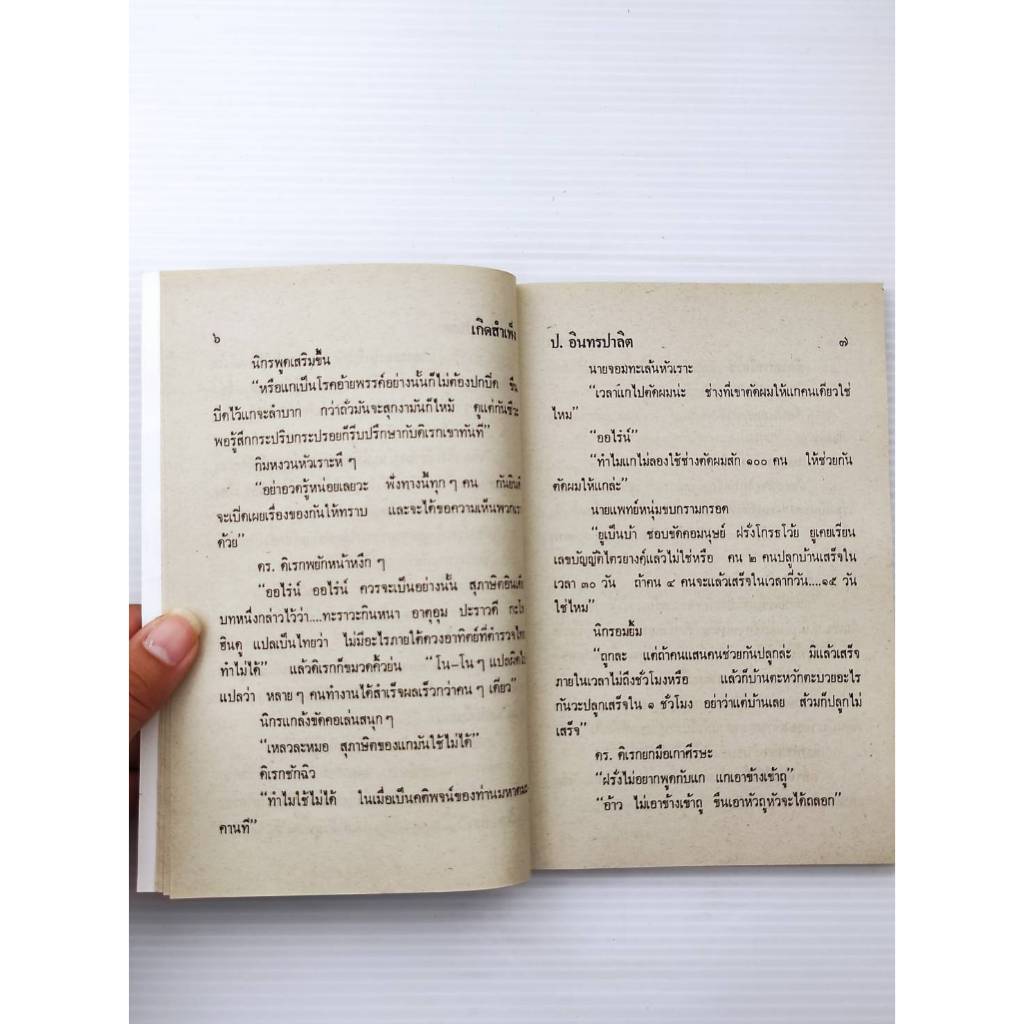 ๖ เกิดสำเพ็ง
นิกรพูดเสริมขึ้น
“หรือแกเป็นโรคอ้ายพรรค์อย่างนั้นก็ไม่ต้องปกบิ๊ด ขืน
บิ๊ดไว้แกจะลำบาก กว่าถั่วมันจะสุกงามันก็ไหม้ ดูแต่กันซีวะ
พอรู้สึกกระปริบกระปรอยก็รีบปรึกษากับดิเรกเขาทันที”
กิมหงวนหัวเราะหึ ๆ
“อย่าอวดรู้หน่อยเลยวะ ฟังทางนี้ทุก ๆ คน กันยินดี
จะเปิดเผยเรื่องของกันให้ทราบ และจะได้ขอความเห็นพวกเรา
ด้วย”
ดร. ดิเรกพยักหน้าหงึก ๆ
“ออไร๋น์ ออไร๋น์ ควรจะเป็นอย่างนั้น สุภาษิตอินเดีย
บทหนึ่งกล่าวไว้ว่า....ทะราวะกินหนา อาดุอุม ปะราวดี กะโ
ฮินดู แปลเป็นไทยว่า ไม่มีอะไรภายใต้ดวงอาทิตย์ที่ตำรวจไทย
ทำไม่ได้” แล้วดิเรกก็ขมวดคิ้วย่น “โน–โน ๆ แปลผิดไป
แปลว่า หลาย ๆ คนทำงานได้สำเร็จผลเร็วกว่าคน ๆ เดียว”
นิกรแกล้งขัดคอเล่นสนุก ๆ
“เหลวละหมอ สุภาษิตของแกมันใช้ไม่ได้”
ดิเรกชักฉิว
“ทำไมใช้ไม่ได้ ในเมื่อเป็นคติพจน์ของท่านมหาตมะ
คานที”
ป. อินทรปาลิต ๗
นายจอมทะเล้นหัวเราะ
“เวลาแกไปตัดผมน่ะ ช่างที่เขาตัดผมให้แกคนเดียวใช่
ไหม”
“ออไร๋น์”
“ทำไมแกไม่ลองใช้ช่างตัดผมสัก ๑๐๐ คน ให้ช่วยกัน
ตัดผมให้แกล่ะ”
นายแพทย์หนุ่มขบกรามกรอด
“ยูเป็นบ้า ชอบขัดคอมนุษย์ ฝรั่งโกรธโว้ย ยูเคยเรียน
เลขบัญญัติไตรยางค์แล้วไม่ใช่หรือ คน ๒ คนปลูกบ้านเสร็จใน
เวลา ๓๐ วัน ถ้าคน ๔ คนจะแล้วเสร็จในเวลากี่วัน....๑๕ วัน
ใช่ไหม”
นิกรอมยิ้ม
“ถูกละ แต่ถ้าคนแสนคนช่วยกันปลูกล่ะ มิแล้วเสร็จ
ภายในเวลาไม่ถึงชั่วโมงหรือ แล้วก็บ้านตะหวักตะบวยอะไร
กันวะปลูกเสร็จใน ๑ ชั่วโมง อย่าว่าแต่บ้านเลย ส้วมก็ปลูกไม่
เสร็จ”
ดร. ดิเรกยกมือเกาศีรษะ
“ฝรั่งไม่อยากพูดกับแก แกเอาข้างเข้าถู”
“อ้าว ไม่เอาข้างเข้าถู ขืนเอาหัวถูหัวจะได้ถลอก”